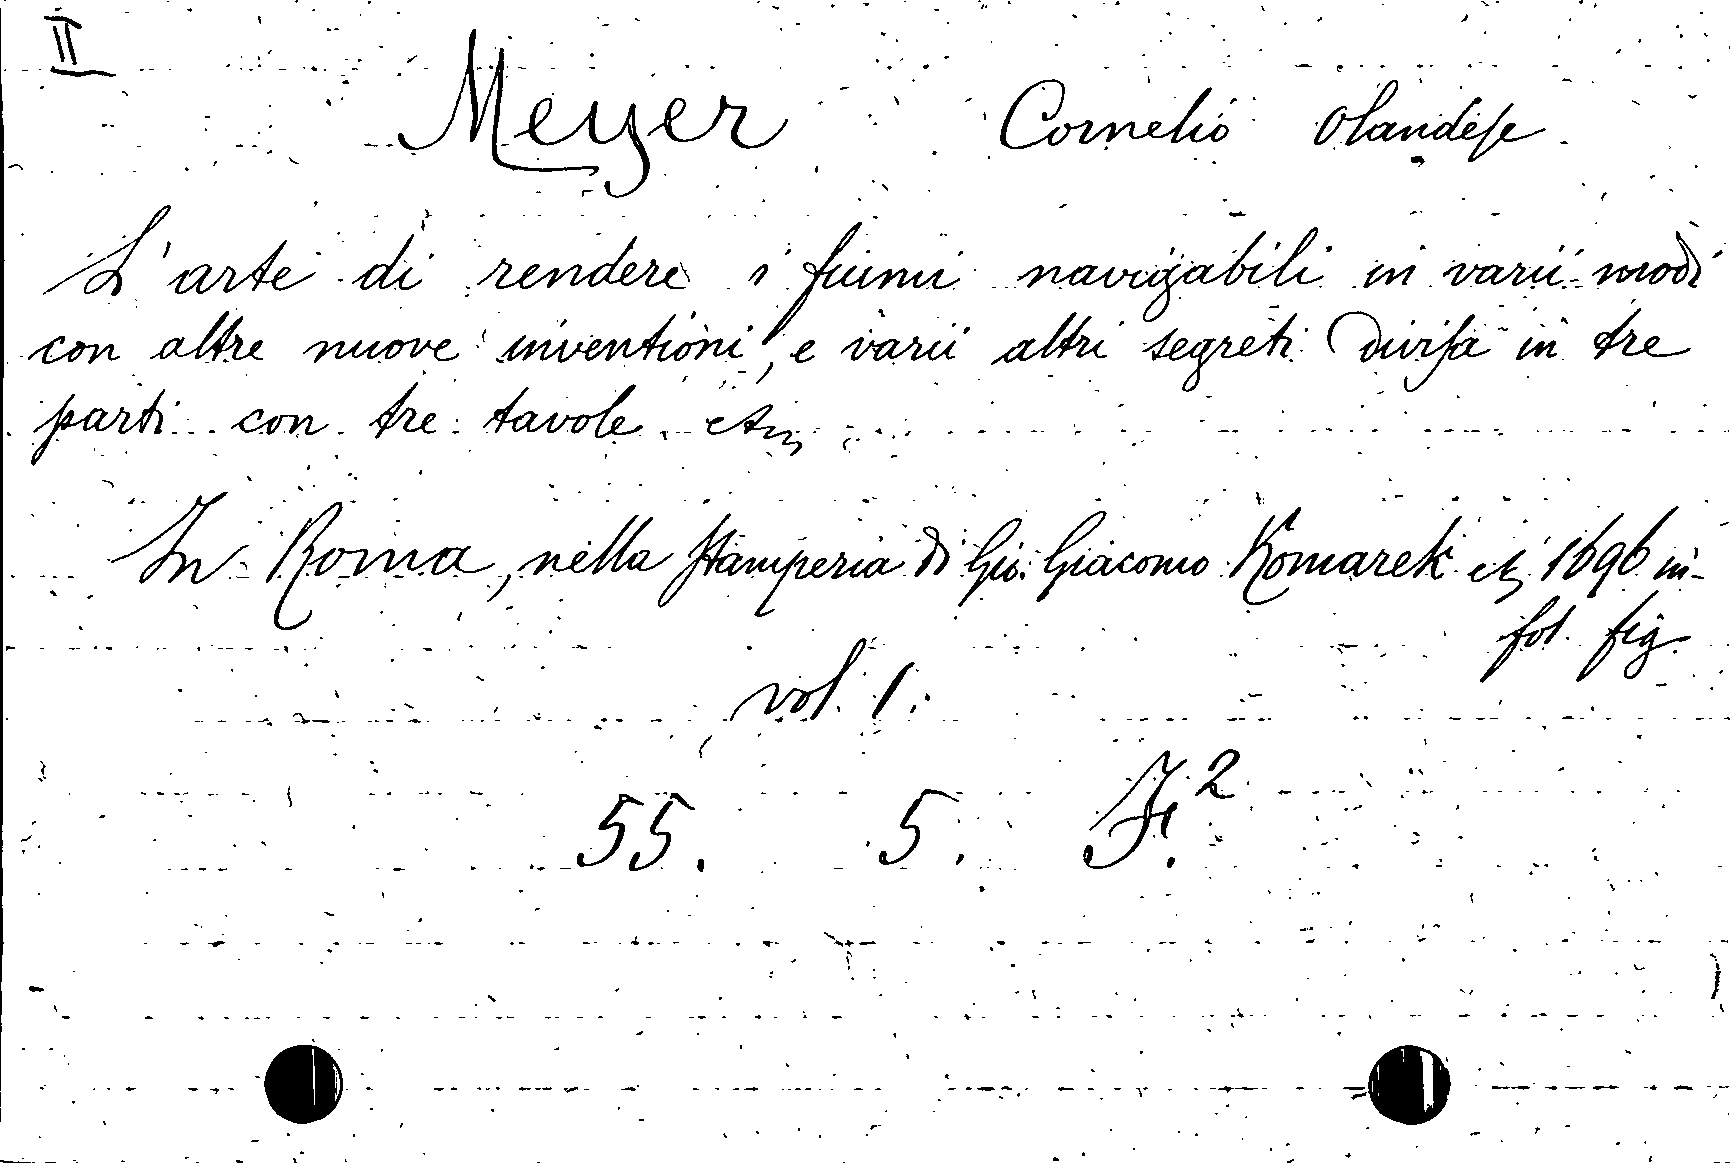 II
Meyer Cornelio Olandese
L'arte di rendere i fiumi navigabili in varii modi
con altre nuove inventioni, e varii altri segreti Divisa in tre
parti con tre tavole etc
In Roma, nella stamperia di Gio: Giacomo Komarek etc 1696 in-
fol. fig.
vol. 1.
55. 5. F.²